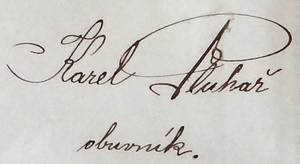 Karel Pluhař
obuvník.